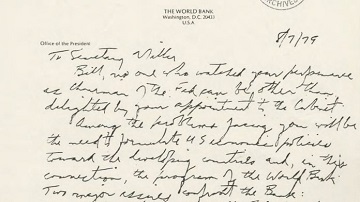 THE WORLD BANK
Washington, D.C. 20433
U.S.A.
ARCHIVES
Office of the President
8/7/79
To Secretary Miller
Bill, no one who watched your performance
as Chairman of the Fed can be other than
delighted by your appointment to the Cabinet.
Among the problems facing you will be
the need to formulate US economic policies
toward the developing countries and, in this
connection, the program of the World Bank.
Two major issues confront the Bank: